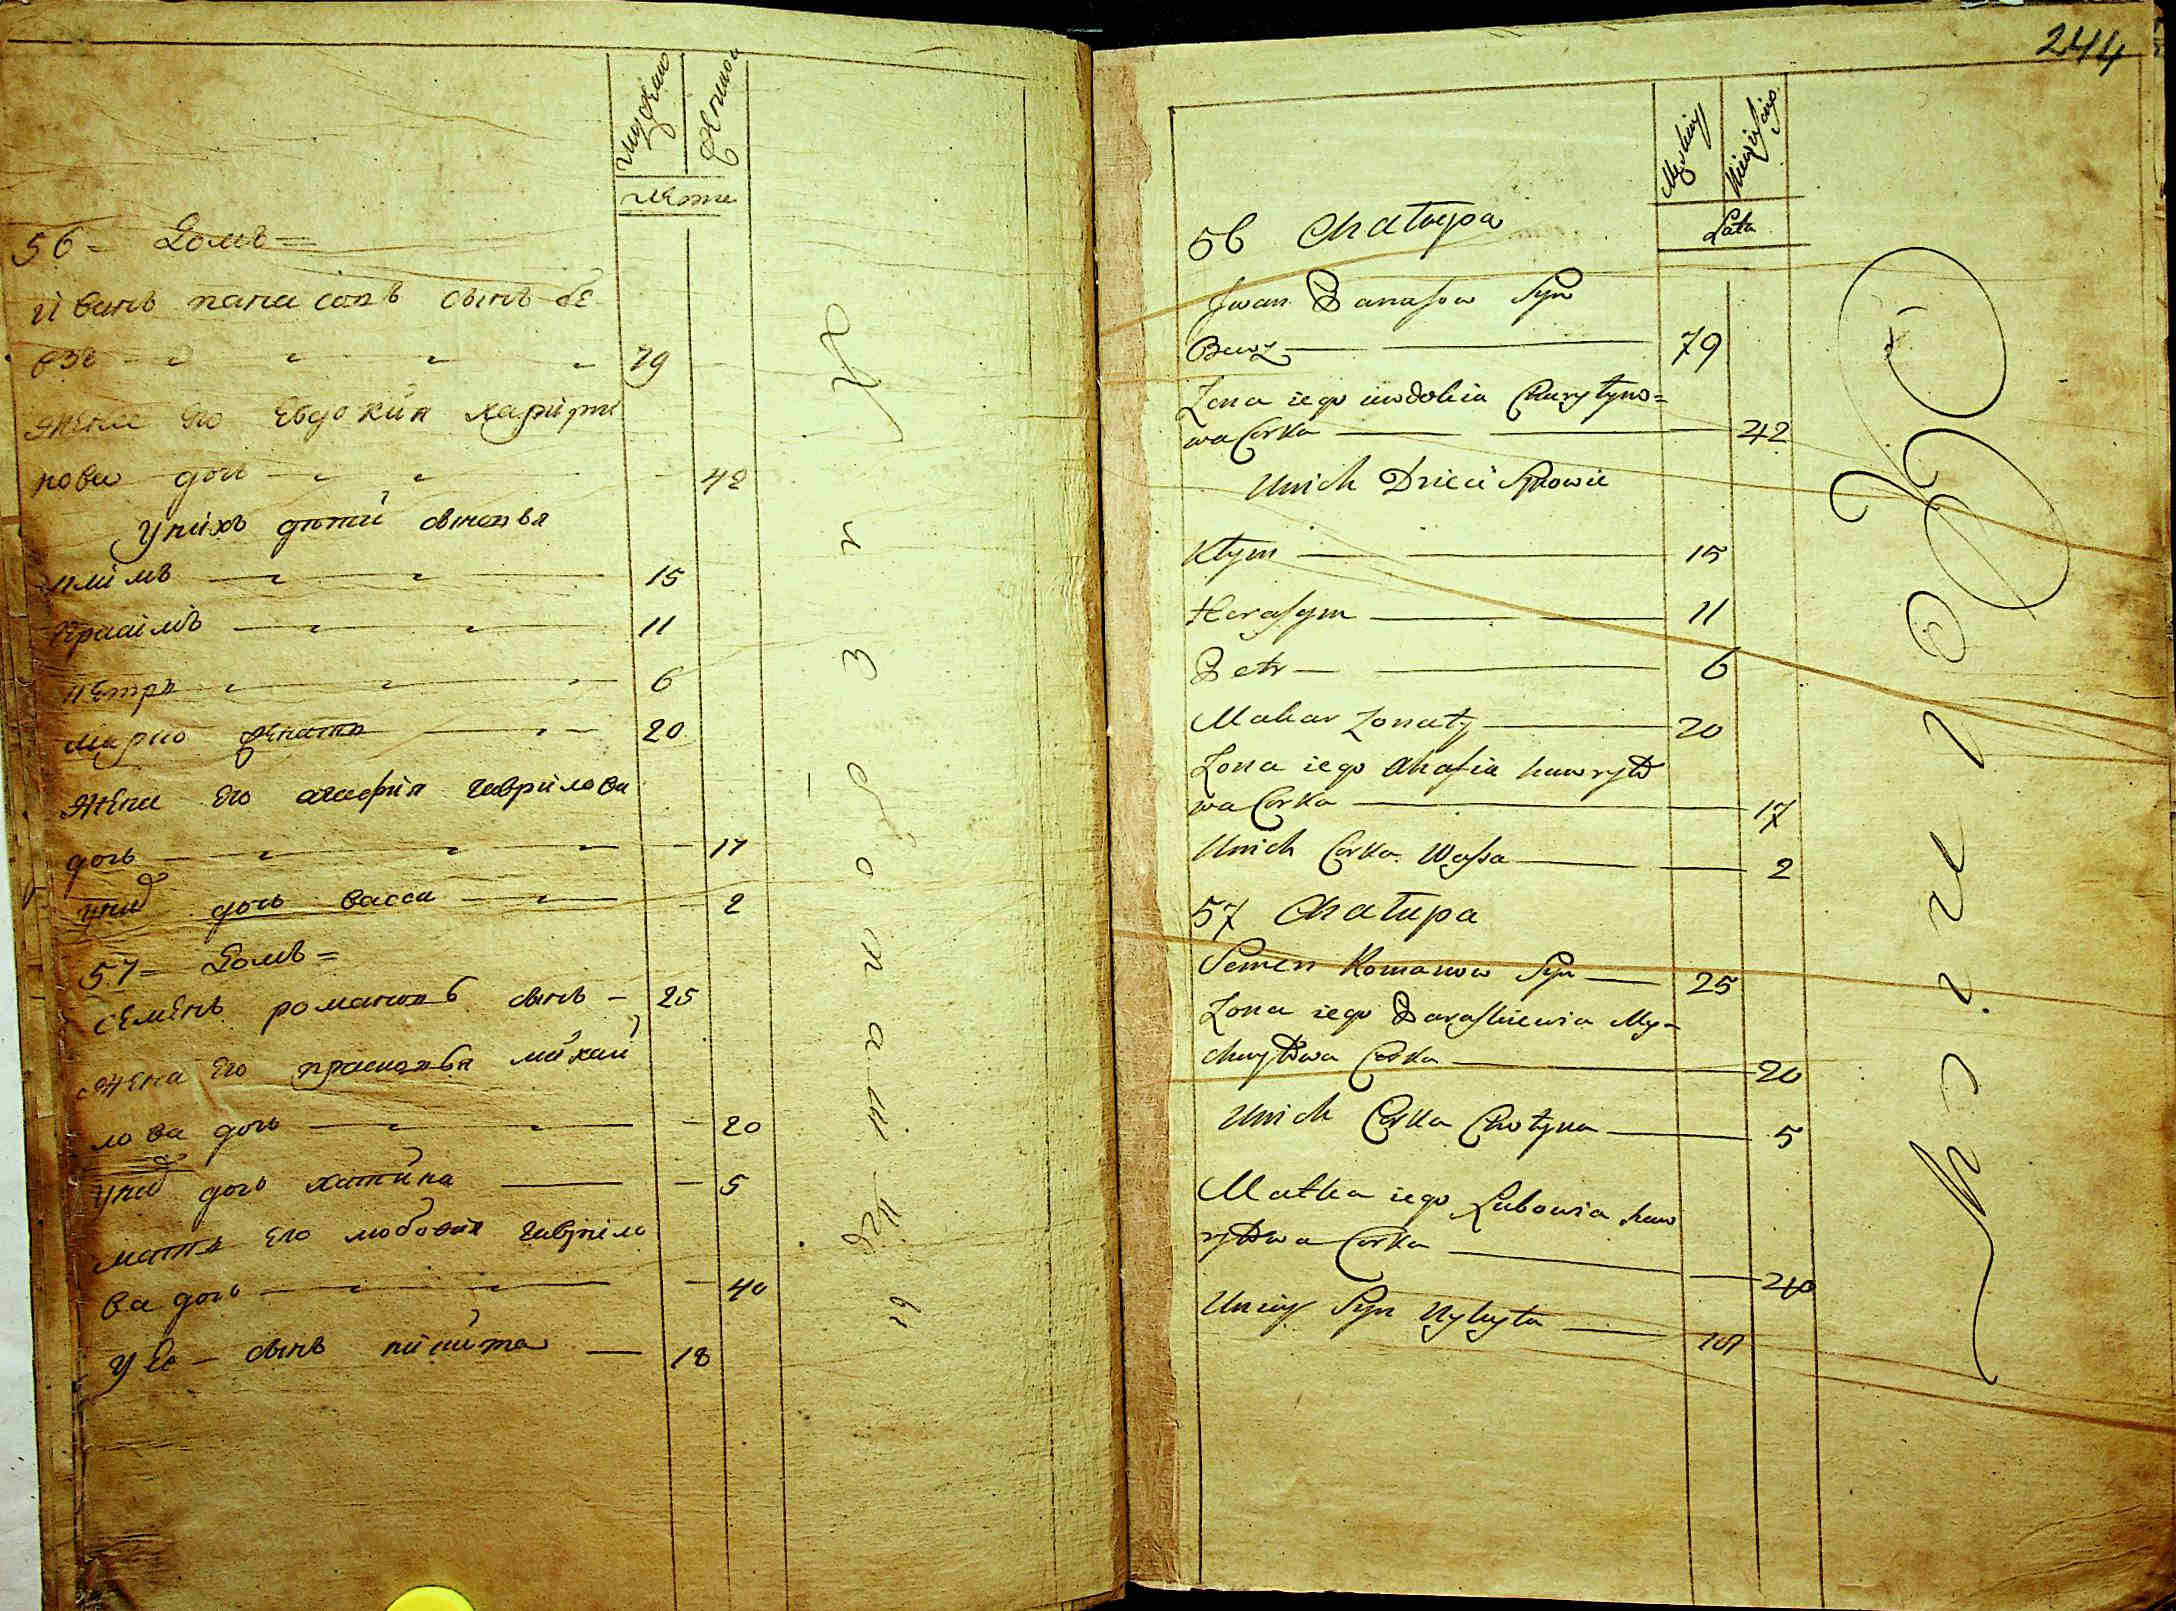 мужеска
женска
лета
56 = Домъ =
Иванъ панасовъ сынъ бе
взъ 79
жена его евдокия харити
нова дочь 42
У нихъ дети сыновья
климъ 15
Герасимъ 11
петръ 6
20
жена его агафия гаврилова
дочь 17
У них дочь васса 2
57 = Домъ =
семенъ романовъ сынъ 25
жена его прасковья михай
лова дочь 20
У них дочь хатина 5
мать его любовия гаврило
ва дочь 40
У ее сынъ никита 18
244
Męskiey
Niewieściey
Lata
56 Chałupa
Jwan Panasow Syn
Bewz 79
Zona iego iewdokia Charytyno=
wa Corka 42
Unich Dzieci Synowie
Kłym 15
Herasym 11
Petr 6
Makar Zonaty 20
Zona iego Ahafia hawryło
wa Corka 17
Unich Corka Wasa 2
57 Chałupa
Semen Romanow Syn 25
Zona iego Paraskiewia My=
chayłowa Corka 20
Unich Corka Chotyna 5
Matka iego Lubowia haw
ryłowa Corka 40
Uniey Syn Nykyta 18